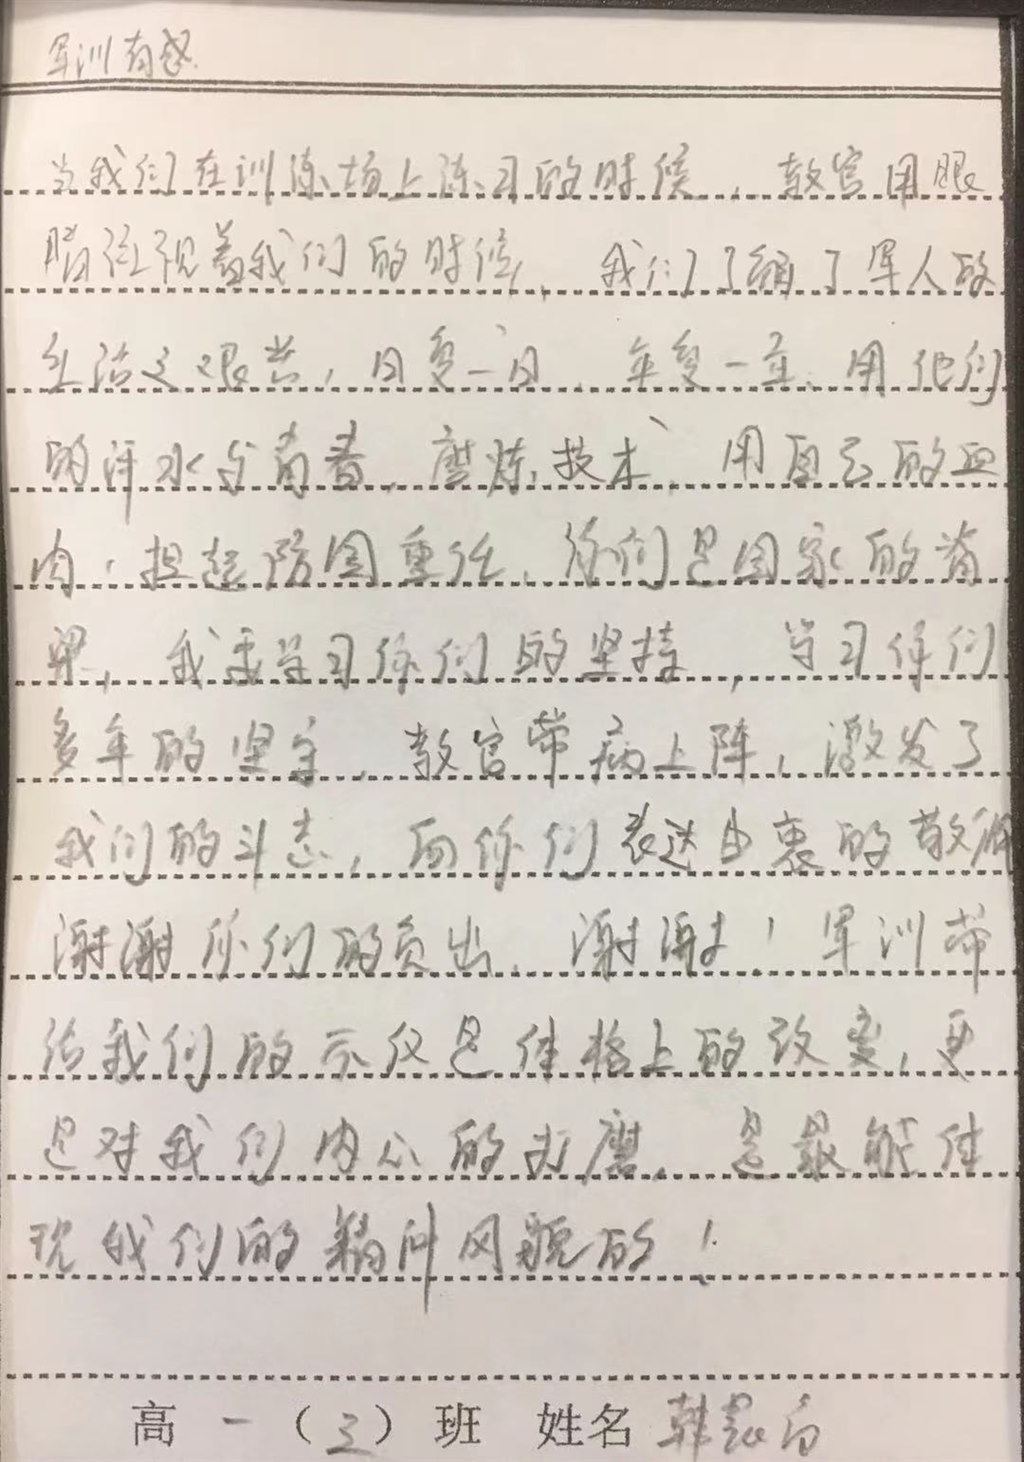 军训有感
当我们在训练场上练习的时候，教官用眼
睛注视着我们的时候，我们了解了军人的
生活之艰苦，日复一日，年复一年，用他们
的汗水与青春，磨炼技术，用自己的血
肉，担起防国重任，你们是国家的脊
梁，我要学习你们的坚持，学习你们
多年的坚守，教官带病上阵，激发了
我们的斗志，向你们表达由衷的敬佩
谢谢你们的负出，谢谢！军训带
给我们的不仅是体格上的改变，更
是对我们内心的打磨，是最能体
现我们的精神风貌的！
高一（三）班 姓名 韩